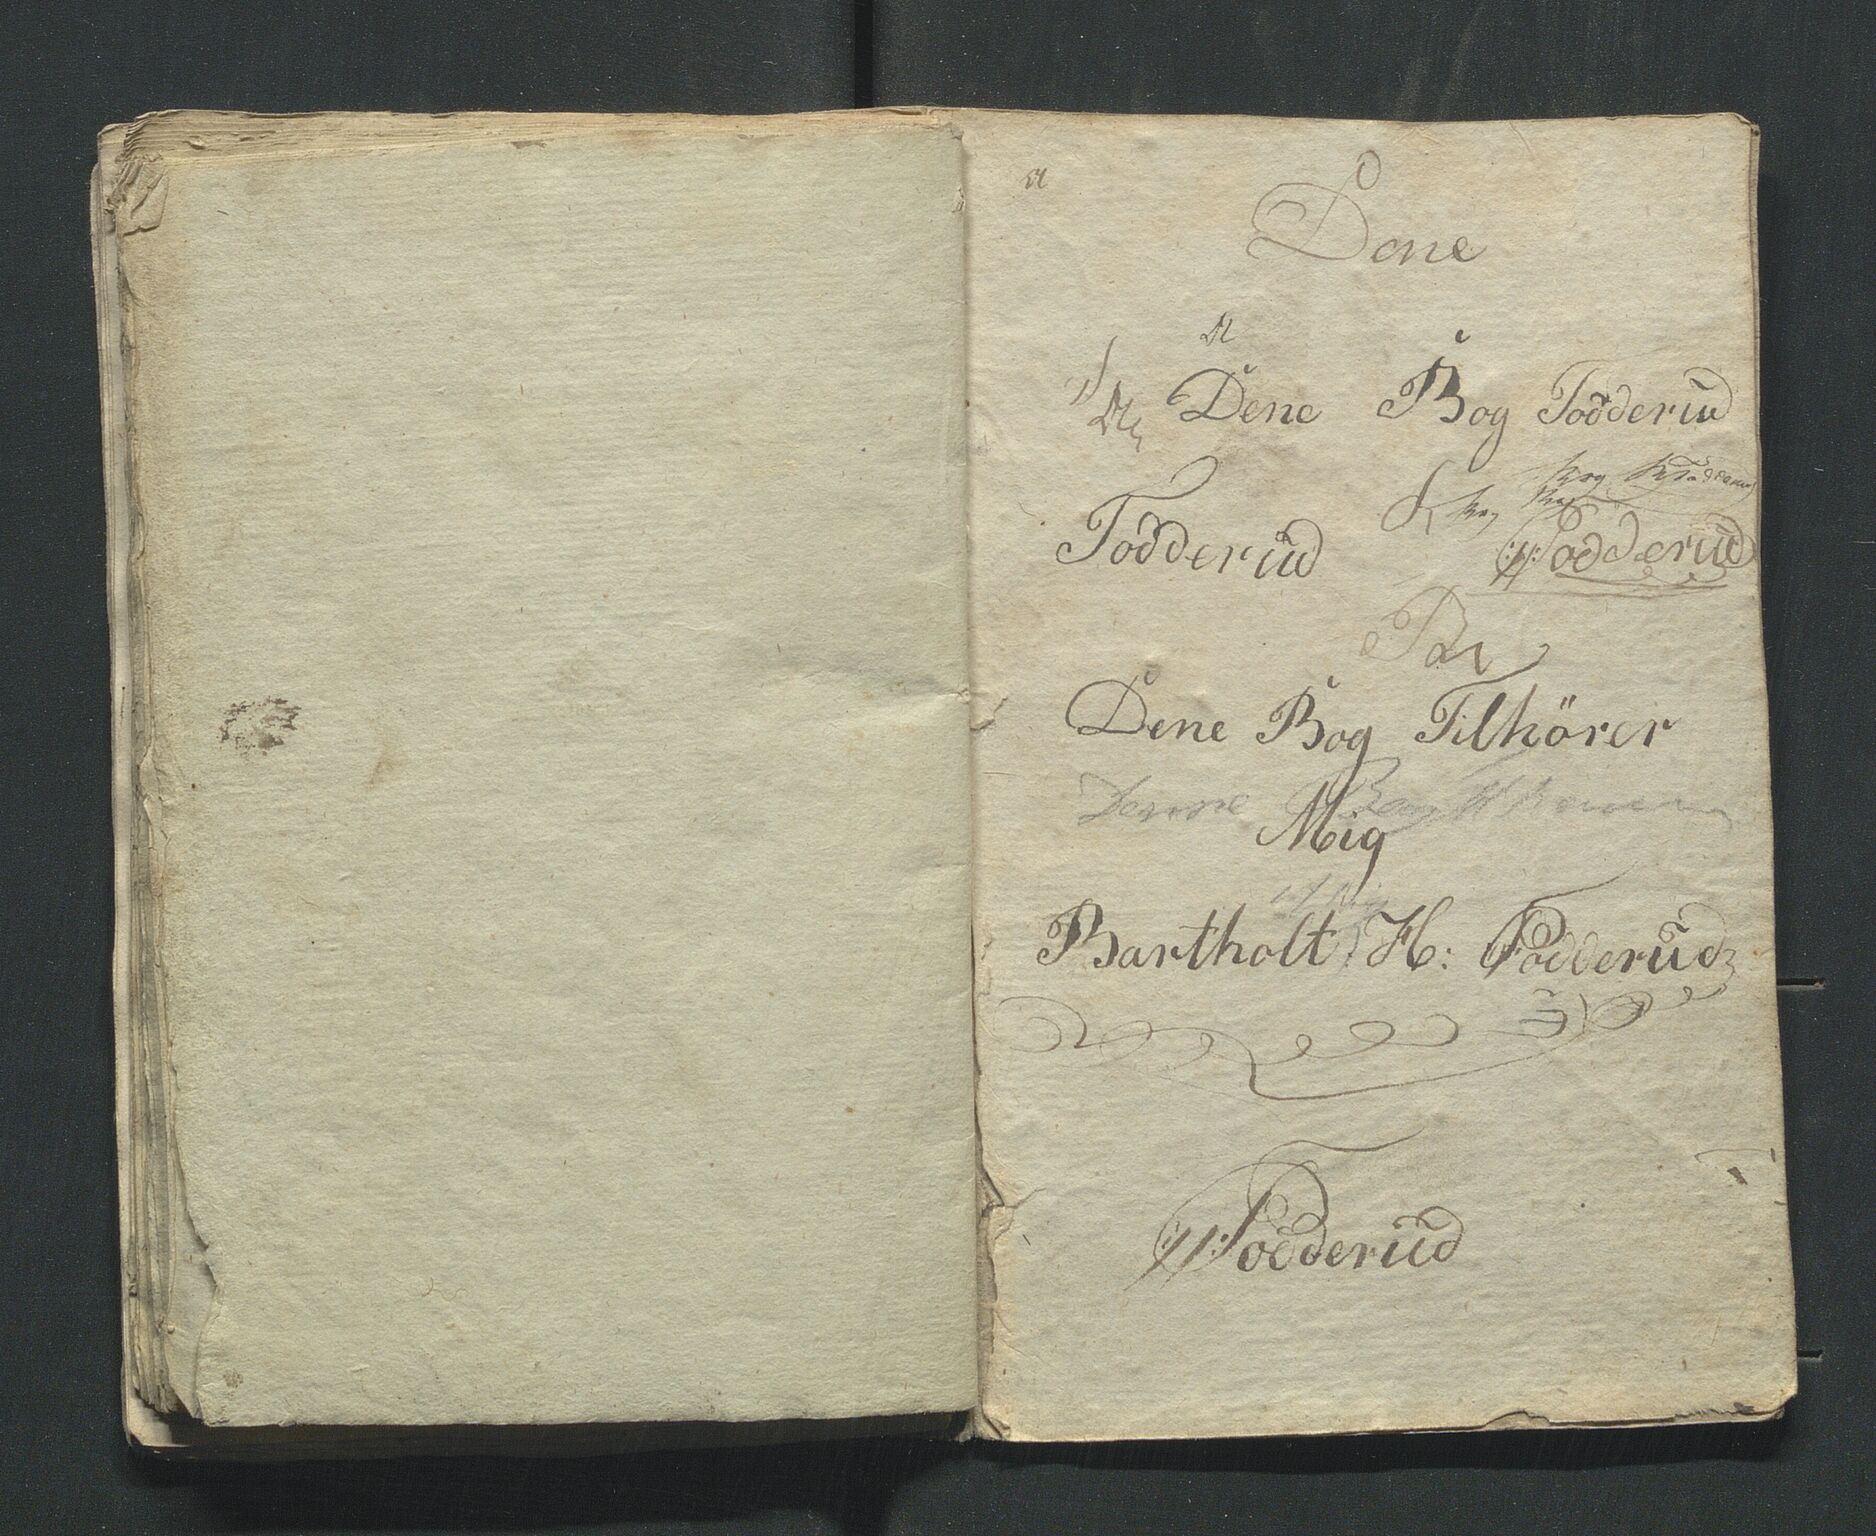 Dene
Dene Bog Todderud
Todderud
Todderud
Dene Bog Tilhörer
Denne Bog
Mig
Bartholt H: Todderud
Todderud